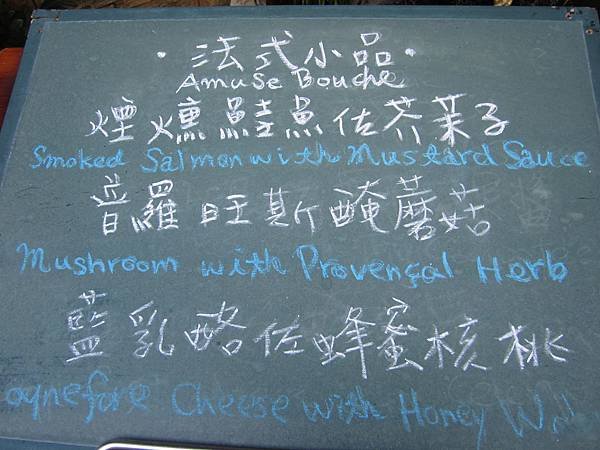 ·法式小品·
Amuse Bouche
煙燻鮭魚佐芥茉子
Smoked Salmon with Mustard Sauce
普羅旺斯醃蘑菇
Mushroom with Provençal Herb
藍乳酪佐蜂蜜核桃
Cheese with Honey